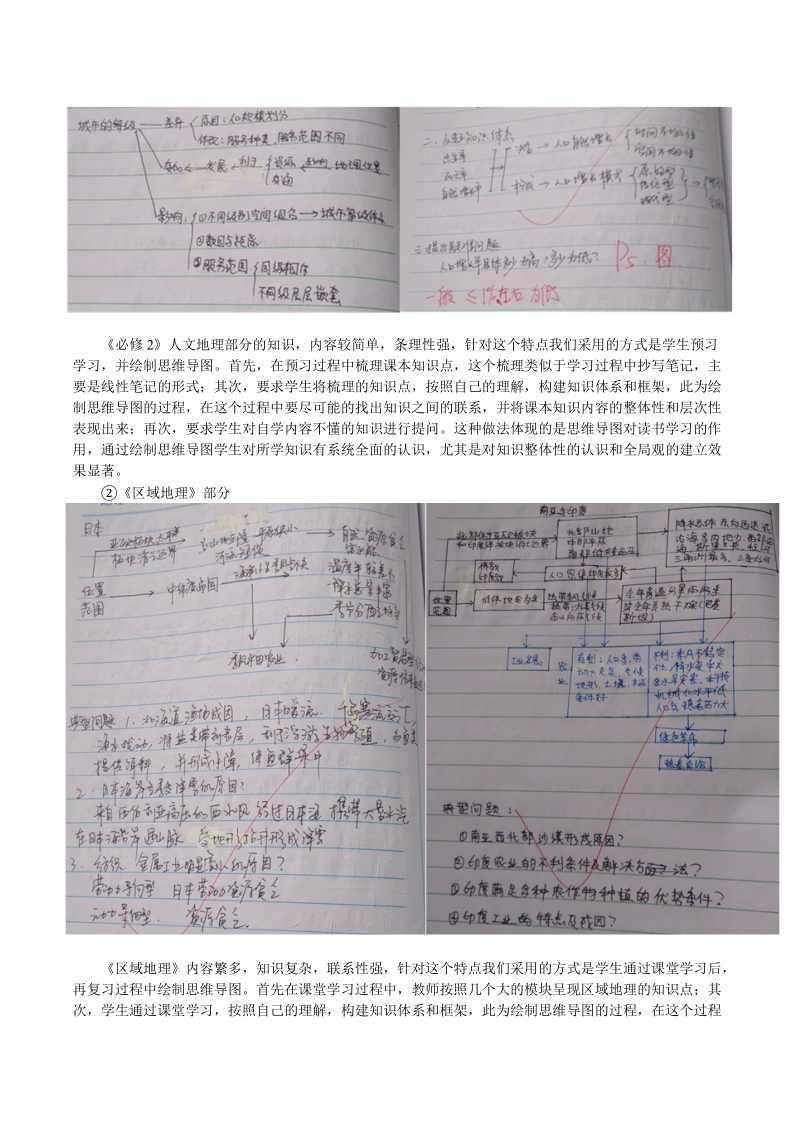 城市的等级
差异
原因：人口规模划分
体现：服务种类、服务范围不同
变化 发展 利于 资源 影响 地理位置
交通
影响：①不同级别空间组合→城市等级体系
②数目与距离
③服务范围 同级相住
不同级层层嵌套
二、
出生率
死亡率
自然增长率
人口自然增长
时间不均衡
空间不均衡
构成→人口增长模式
原始型
传统型
现代型
三、提出疑惑问题
P5、图
一般 ≤1%左右为低
《必修 2》人文地理部分的知识，内容较简单，条理性强，针对这个特点我们采用的方式是学生预习
学习，并绘制思维导图。首先，在预习过程中梳理课本知识点，这个梳理类似于学习过程中抄写笔记，主
要是线性笔记的形式；其次，要求学生将梳理的知识点，按照自己的理解，构建知识体系和框架，此为绘
制思维导图的过程，在这个过程中要尽可能的找出知识之间的联系，并将课本知识内容的整体性和层次性
表现出来；再次，要求学生对自学内容不懂的知识进行提问。这种做法体现的是思维导图对读书学习的作
用，通过绘制思维导图学生对所学知识有系统全面的认识，尤其是对知识整体性的认识和全局观的建立效
果显著。
②《区域地理》部分
日本
亚欧板块太平洋
板块消亡边界
多山地丘陵 平原狭小
河流短促
自然资源贫乏
位置
范围
中纬度岛国
海洋性季风气候
温度年较差小
降水总量丰富
季节分配较均
季风水田农业
典型问题 1、北海道渔场成因，日本暖流、千岛寒流交汇，
海水扰动，将盐类带到表层，利于浮游生物繁殖，为鱼类
提供饵料，并形成水障，使鱼群集中
2、日本海岸多降雪的原因？
来自西伯利亚高压的西北风 经过日本海 携带大量水汽
在日本海沿岸遇山脉 受地形抬升形成降雪
3、纺织 金属工业的原因？
劳动力导向型 日本劳动力资源贫乏
动力导向型、 资源贫乏
南亚与印度
北部位于亚欧板块
和印度洋板块消亡边界
北部山地
中部平原
南部
位置
范围
人口密集
热带季风气候
热带沙漠气候
工业发展
农业
有利：人口多，劳
动力充足，气候
地形、土壤、水源
条件好
不利：季风不稳定
性，降水变率大
易水旱灾害，科技
机械化水平低
人口多 粮食压力大
绿色革命
粮食自给
典型问题：
①南亚西北部沙漠形成原因？
②印度农业的不利条件及解决方法？
③印度满足多种农作物种植的优势条件？
④印度工业的特点及成因？
《区域地理》内容繁多，知识复杂，联系性强，针对这个特点我们采用的方式是学生通过课堂学习后，
再复习过程中绘制思维导图。首先在课堂学习过程中，教师按照几个大的模块呈现区域地理的知识点；其
次，学生通过课堂学习，按照自己的理解，构建知识体系和框架，此为绘制思维导图的过程，在这个过程